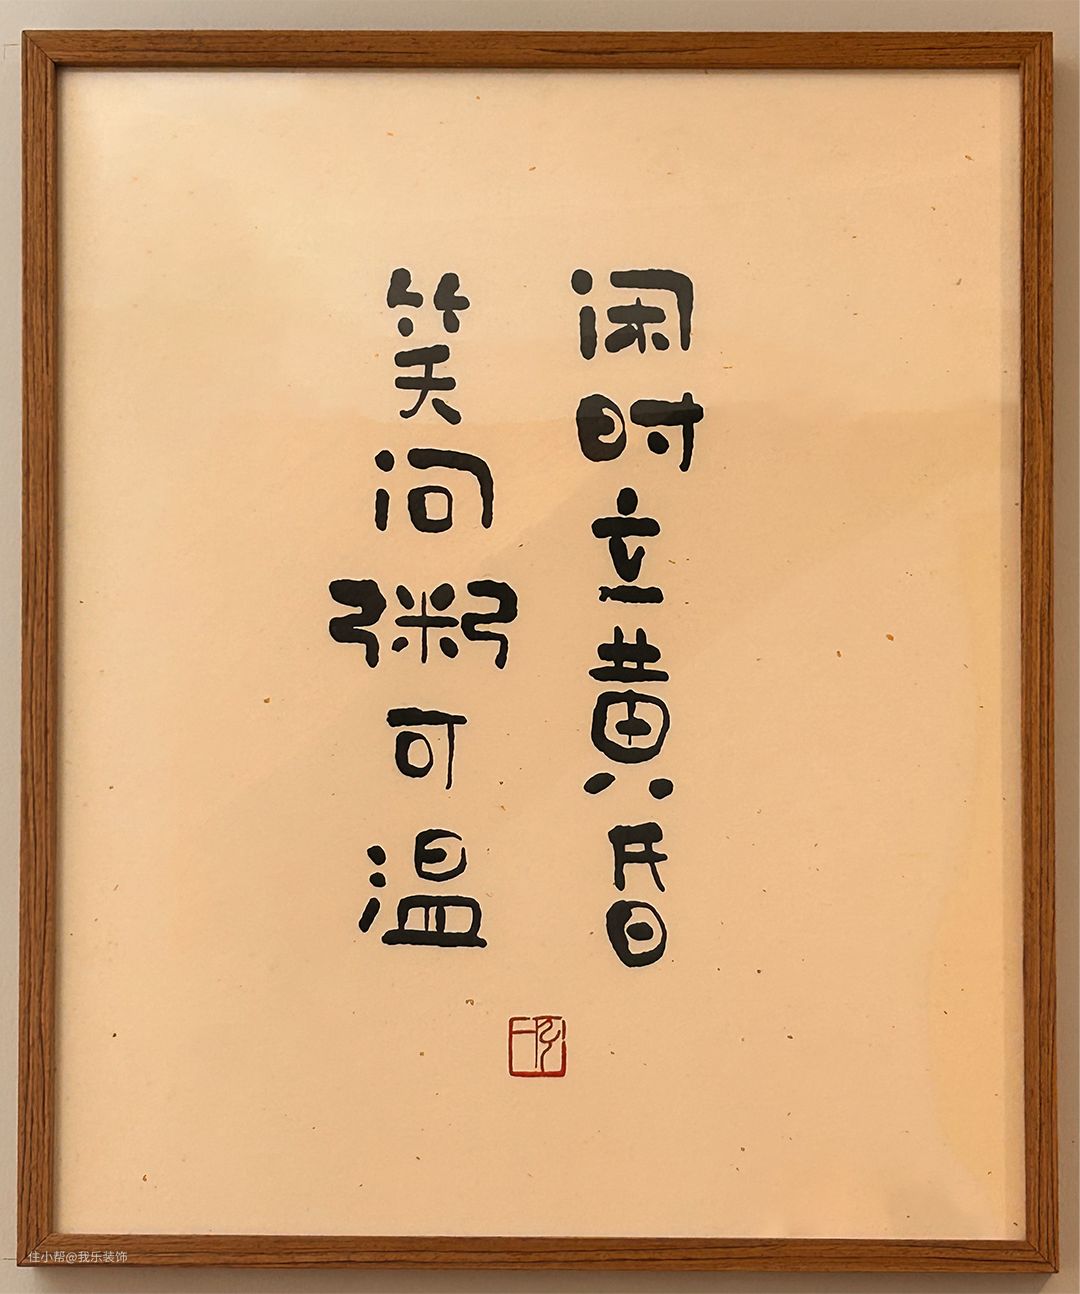 闲时立黄昏
笑问粥可温
住小帮@我乐装饰